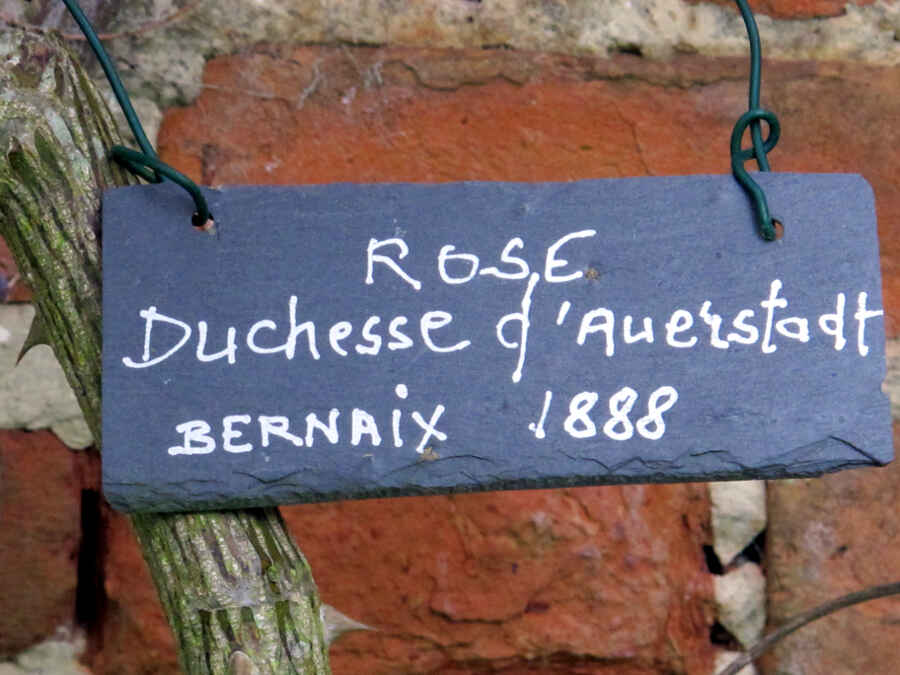 ROSE
Duchesse d'Auerstadt
BERNAIX 1888